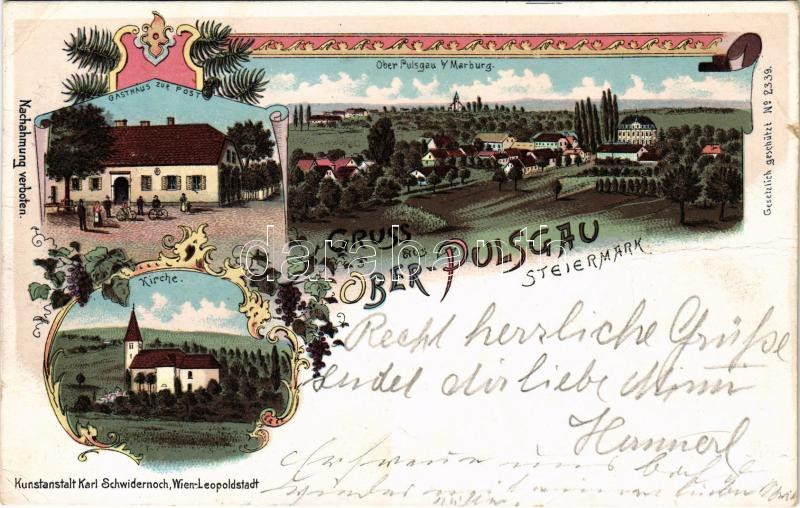 Ober Pulsgau b/ Marburg.
GASTHAUS ZUR POST
Nachahmung verboten.
Gesetzlich geschützt No 2339.
GRUSS aus
OBER-PULSGAU
STEIERMARK
Kirche.
Recht herzliche Grüße
sendet dir liebe
Hannerl
uns bald
wieder mit
Kunstanstalt Karl Schwidernoch, Wien-Leopoldstadt
darabanth